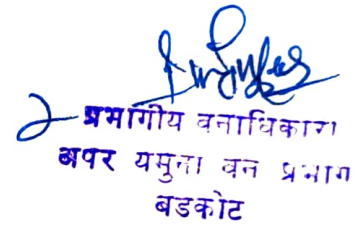 प्रभागीय वनाधिकारी
अपर यमुना वन प्रभाग
बडकोट